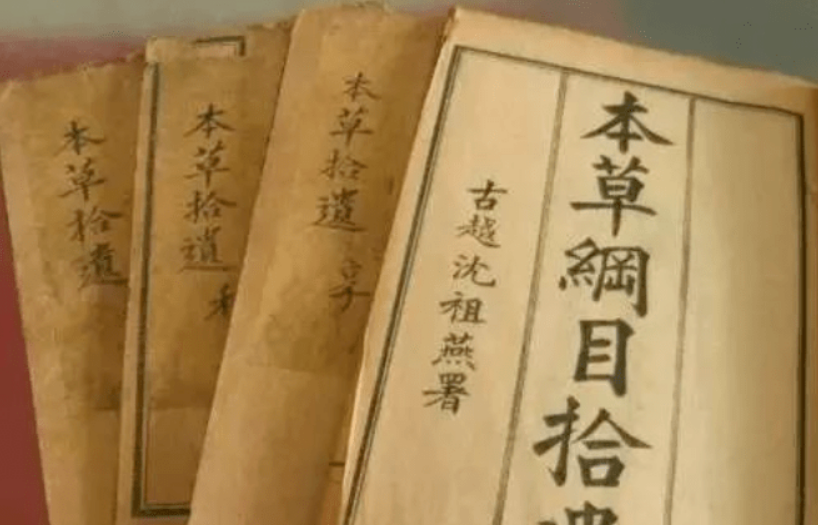 本草拾遺
本草拾遺
利
本草拾遺
享
本草綱目拾
古越沈祖燕署